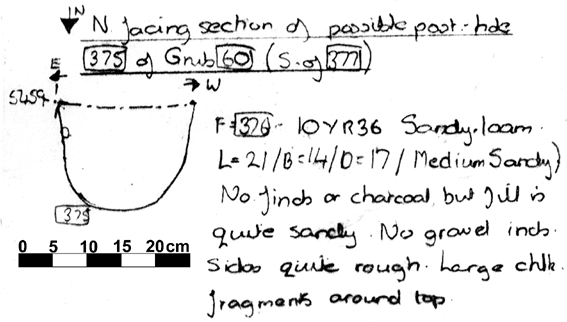 N
N facing section of possible post-hole
375 of Grub 60 (S. of 377)
E
W
5459
F= 376 - 10YR36 Sandy loam.
L= 21/B=14/D=17/ Medium Sandy)
No finds or charcoal, but fill is
quite sandy. No gravel incs.
Sides quite rough. Large chlk.
fragments around top.
375
0 5 10 15 20 cm